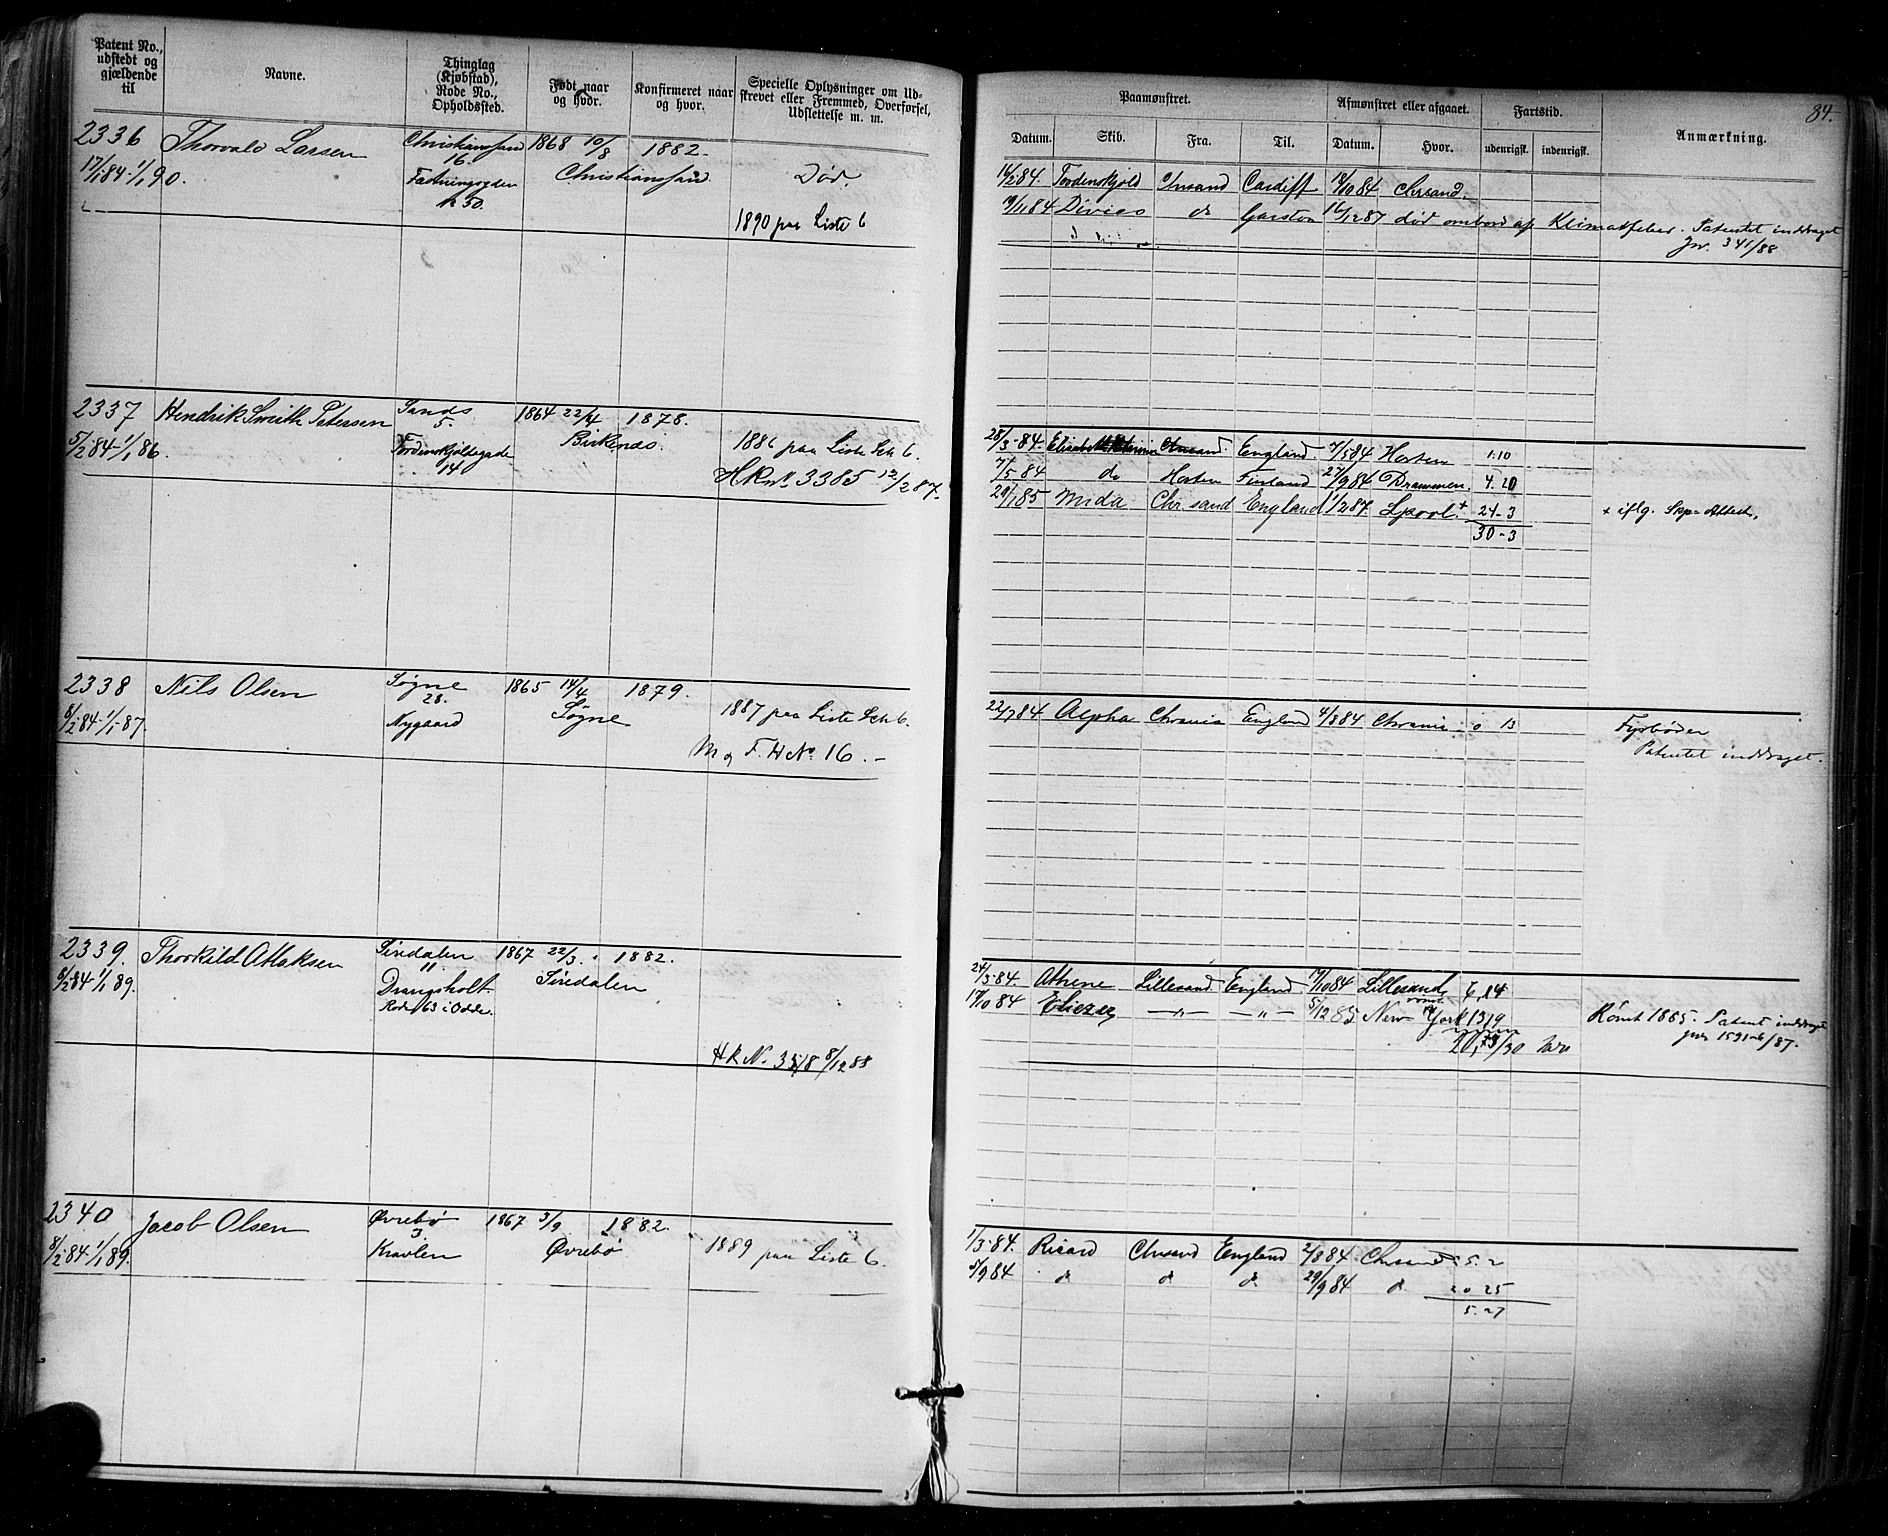 Patent No., udstedt og gjældende til
Navne.
Thinglag (Kjøbstad), Rode No., Opholdssted.
Født naar og hvor.
Konfirmeret naar og hvor.
Specielle Oplysninger om Udskrevet eller Fremmed, Overførsel, Udslettelse m. m.
Paamønstret.
Afmønstret eller afgaaet.
Fartstid.
Anmærkning.
84.
Datum.
Skib.
Fra.
Til.
Datum.
Hvor.
udenrigsk.
indenrigsk.
2336 Thorvald Larsen Christianssand 1868 10/8 1882.
16.
17/1 84-1/1 90. Christianssand. Død.
No 50.
1890 paa Liste 6
16/2 84. Tordenskjold Chrsand Cardiff 18/10 84 Chrsand.
19/11 84 do Garston 16/12 87 død ombord af Klimatfeber. Patentet inddraget
Jnr. 341/88
2337 Hendrik Smith Petersen Sands 1864 22/4 1878.
5.
5/2 84-1/1 86. Tordenskjoldsgade Birkenæs 1886 paa Liste Sch 6.
14 HR No 3385 12/2 87.
28/3-84. Chrsand England 7/5 84 Horten 1.10
7/5 84 do Horten Finland 27/9 84 Drammen. 4.20
29/1 85 Mida Chr.sand England 1/2 87. Lpool + 24-3 + iflg. Skp-Attest.
30-3
2338 Nils Olsen Søgne 1865 14/4 1879.
28.
8/2 84-1/1-87. Nygaard Søgne 1887 paa Liste Sch 6.
M og F. H No. 16.-
22/7 84 Alpha Chrania England 4/8 84 Chrania 0 13 Fyrbøder
Patentet inddraget.
2339. Thorkild Atlaksen Siredalen 1867 22/3. 1882.
11
8/2 84 1/1 89. Drangsholt. Siredalen
Rode 63 i Odde.
HR No. 3518 8/12 88
24/3-84. Athene Lillesand England 17/10 84 Lillesand 6,14
17/10 84 Eliezer -"- -"- 5/12 85 New York 13,19 Rømt 1885. Patent inddraget
rømt
2340 Jacob Olsen Øvrebø 1867 3/9 1882.
3
8/2-84 1/1 89. Kravlen Øvrebø 1889 paa Liste 6.
1/3-84. Ricard Chrsand England 2/8 84 Chrsand 5.2
5/9 84 d. d d. 29/9 84 d. 20 25
5.27